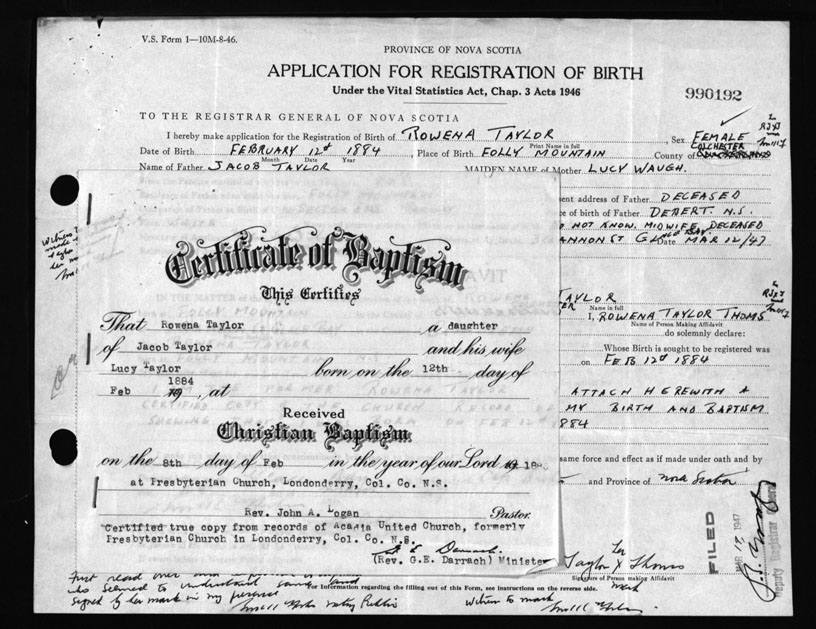 V.S. Form 1—10M-8-46.
PROVINCE OF NOVA SCOTIA
APPLICATION FOR REGISTRATION OF BIRTH
Under the Vital Statistics Act, Chap. 3 Acts 1946
990192
TO THE REGISTRAR GENERAL OF NOVA SCOTIA
I hereby make application for the Registration of Birth of ROWENA TAYLOR, Sex FEMALE
Print Name in full
COLCHESTER
Date of Birth FEBRUARY 12th 1884, Place of Birth FOLLY MOUNTAIN County of
Month Date Year
Name of Father JACOB TAYLOR MAIDEN NAME of Mother LUCY WAUGH.
ent address of Father DECEASED
ce of birth of Father DEBERT. N.S.
O NOT KNOW. MIDWIFE DECEASED
ANNON ST GL Date MAR 12/47
Certificate of Baptism
This Certifies
That Rowena Taylor a daughter
of Jacob Taylor and his wife
Lucy Taylor born on the 12th day of
Feb 1884, at
Received
Christian Baptism
on the 8th day of Feb in the year of our Lord 188
at Presbyterian Church, Londonderry, Col. Co. N.S.
Rev. John A. Logan Pastor.
"Certified true copy from records of Acadia United Church, formerly
Presbyterian Church in Londonderry, Col. Co. N.S.
(Rev. G.E. Darrach) Minister
TAYLOR
Name in full
I, ROWENA TAYLOR THOMS
Name of Person Making Affidavit
do solemnly declare:
Whose Birth is sought to be registered was
on FEB 12th 1884
ATTACH HEREWITH A
MY BIRTH AND BAPTISM
884
same force and effect as if made under oath and by
and Province of Nova Scotia
FILED
MAR 17 1947
Deputy Registrar General
her
Taylor X Thoms
Signature of Person making Affidavit
mark
First read over
who seemed to understand same and
signed by her mark in my presence
For Information regarding the filling out of this Form, see instructions on the reverse side.
Notary Public
Witness to mark